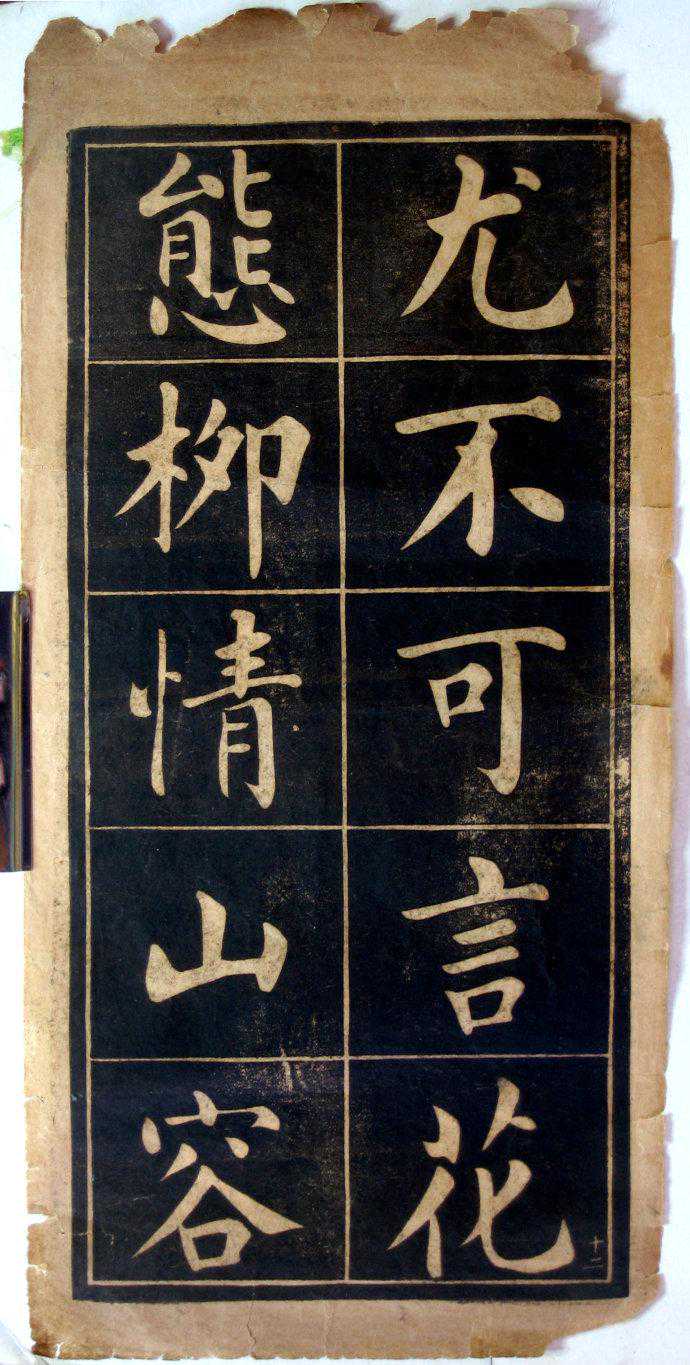 尤不可言花
十二
態柳情山容